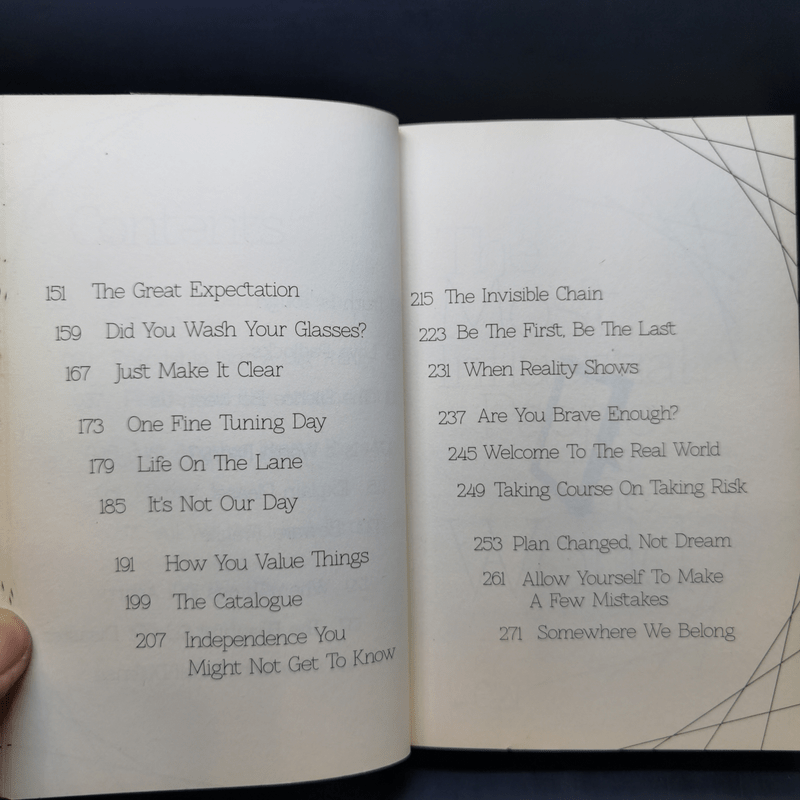 151 The Great Expectation
159 Did You Wash Your Glasses?
167 Just Make It Clear
173 One Fine Tuning Day
179 Life On The Lane
185 It's Not Our Day
191 How You Value Things
199 The Catalogue
207 Independence You
Might Not Get To Know
215 The Invisible Chain
223 Be The First, Be The Last
231 When Reality Shows
237 Are You Brave Enough?
245 Welcome To The Real World
249 Taking Course On Taking Risk
253 Plan Changed, Not Dream
261 Allow Yourself To Make
A Few Mistakes
271 Somewhere We Belong